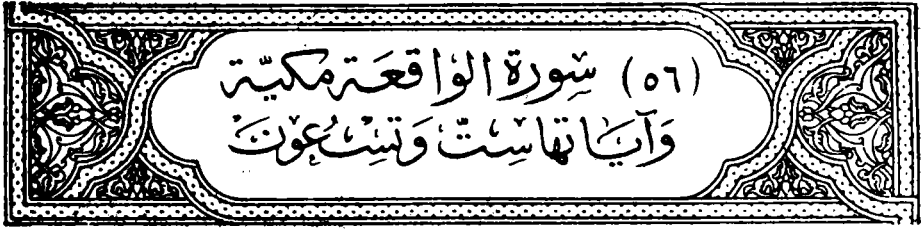 (٥٦) سُورَة الوَاقعَة مكيَّة
وَآيَاتهَا سِتّ وَتِسْعُونَ